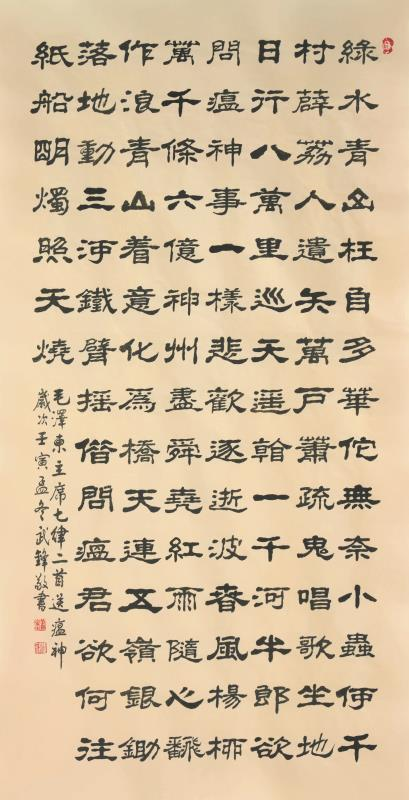 綠水青山枉自多華佗無奈小蟲何千
村薜荔人遺矢萬戶蕭疏鬼唱歌坐地
日行八萬里巡天遙看一千河牛郎欲
問瘟神事一樣悲歡逐逝波春風楊柳
萬千條六億神州盡舜堯紅雨隨心飜
作浪青山着意化爲橋天連五嶺銀鋤
落地動三河鐵臂搖借問瘟君欲何往
紙船明燭照天燒
毛澤東主席七律二首送瘟神
歲次壬寅孟冬武鋒敬書